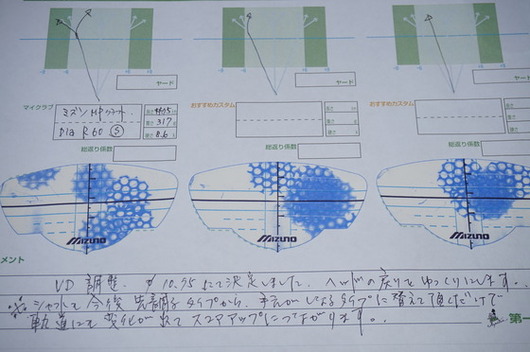 ヤード
ヤード
ヤード
マイクラブ
おすすめカスタム
おすすめカスタム
ミズノMPクラフト
長さ
重さ 317
硬さ 8.6
Dia R60 S
総返り係数
総返り係数
総返り係数
MIZUNO
MIZUNO
MIZUNO
メント
調整。 10.75にて決定しました。ヘッドの戻りをゆっくりにします。
※シャフトを今後先調子タイプから、手元がしなるタイプに替えて頂くだけで
軌道にも変化が出てスコアアップにつながります。
第一